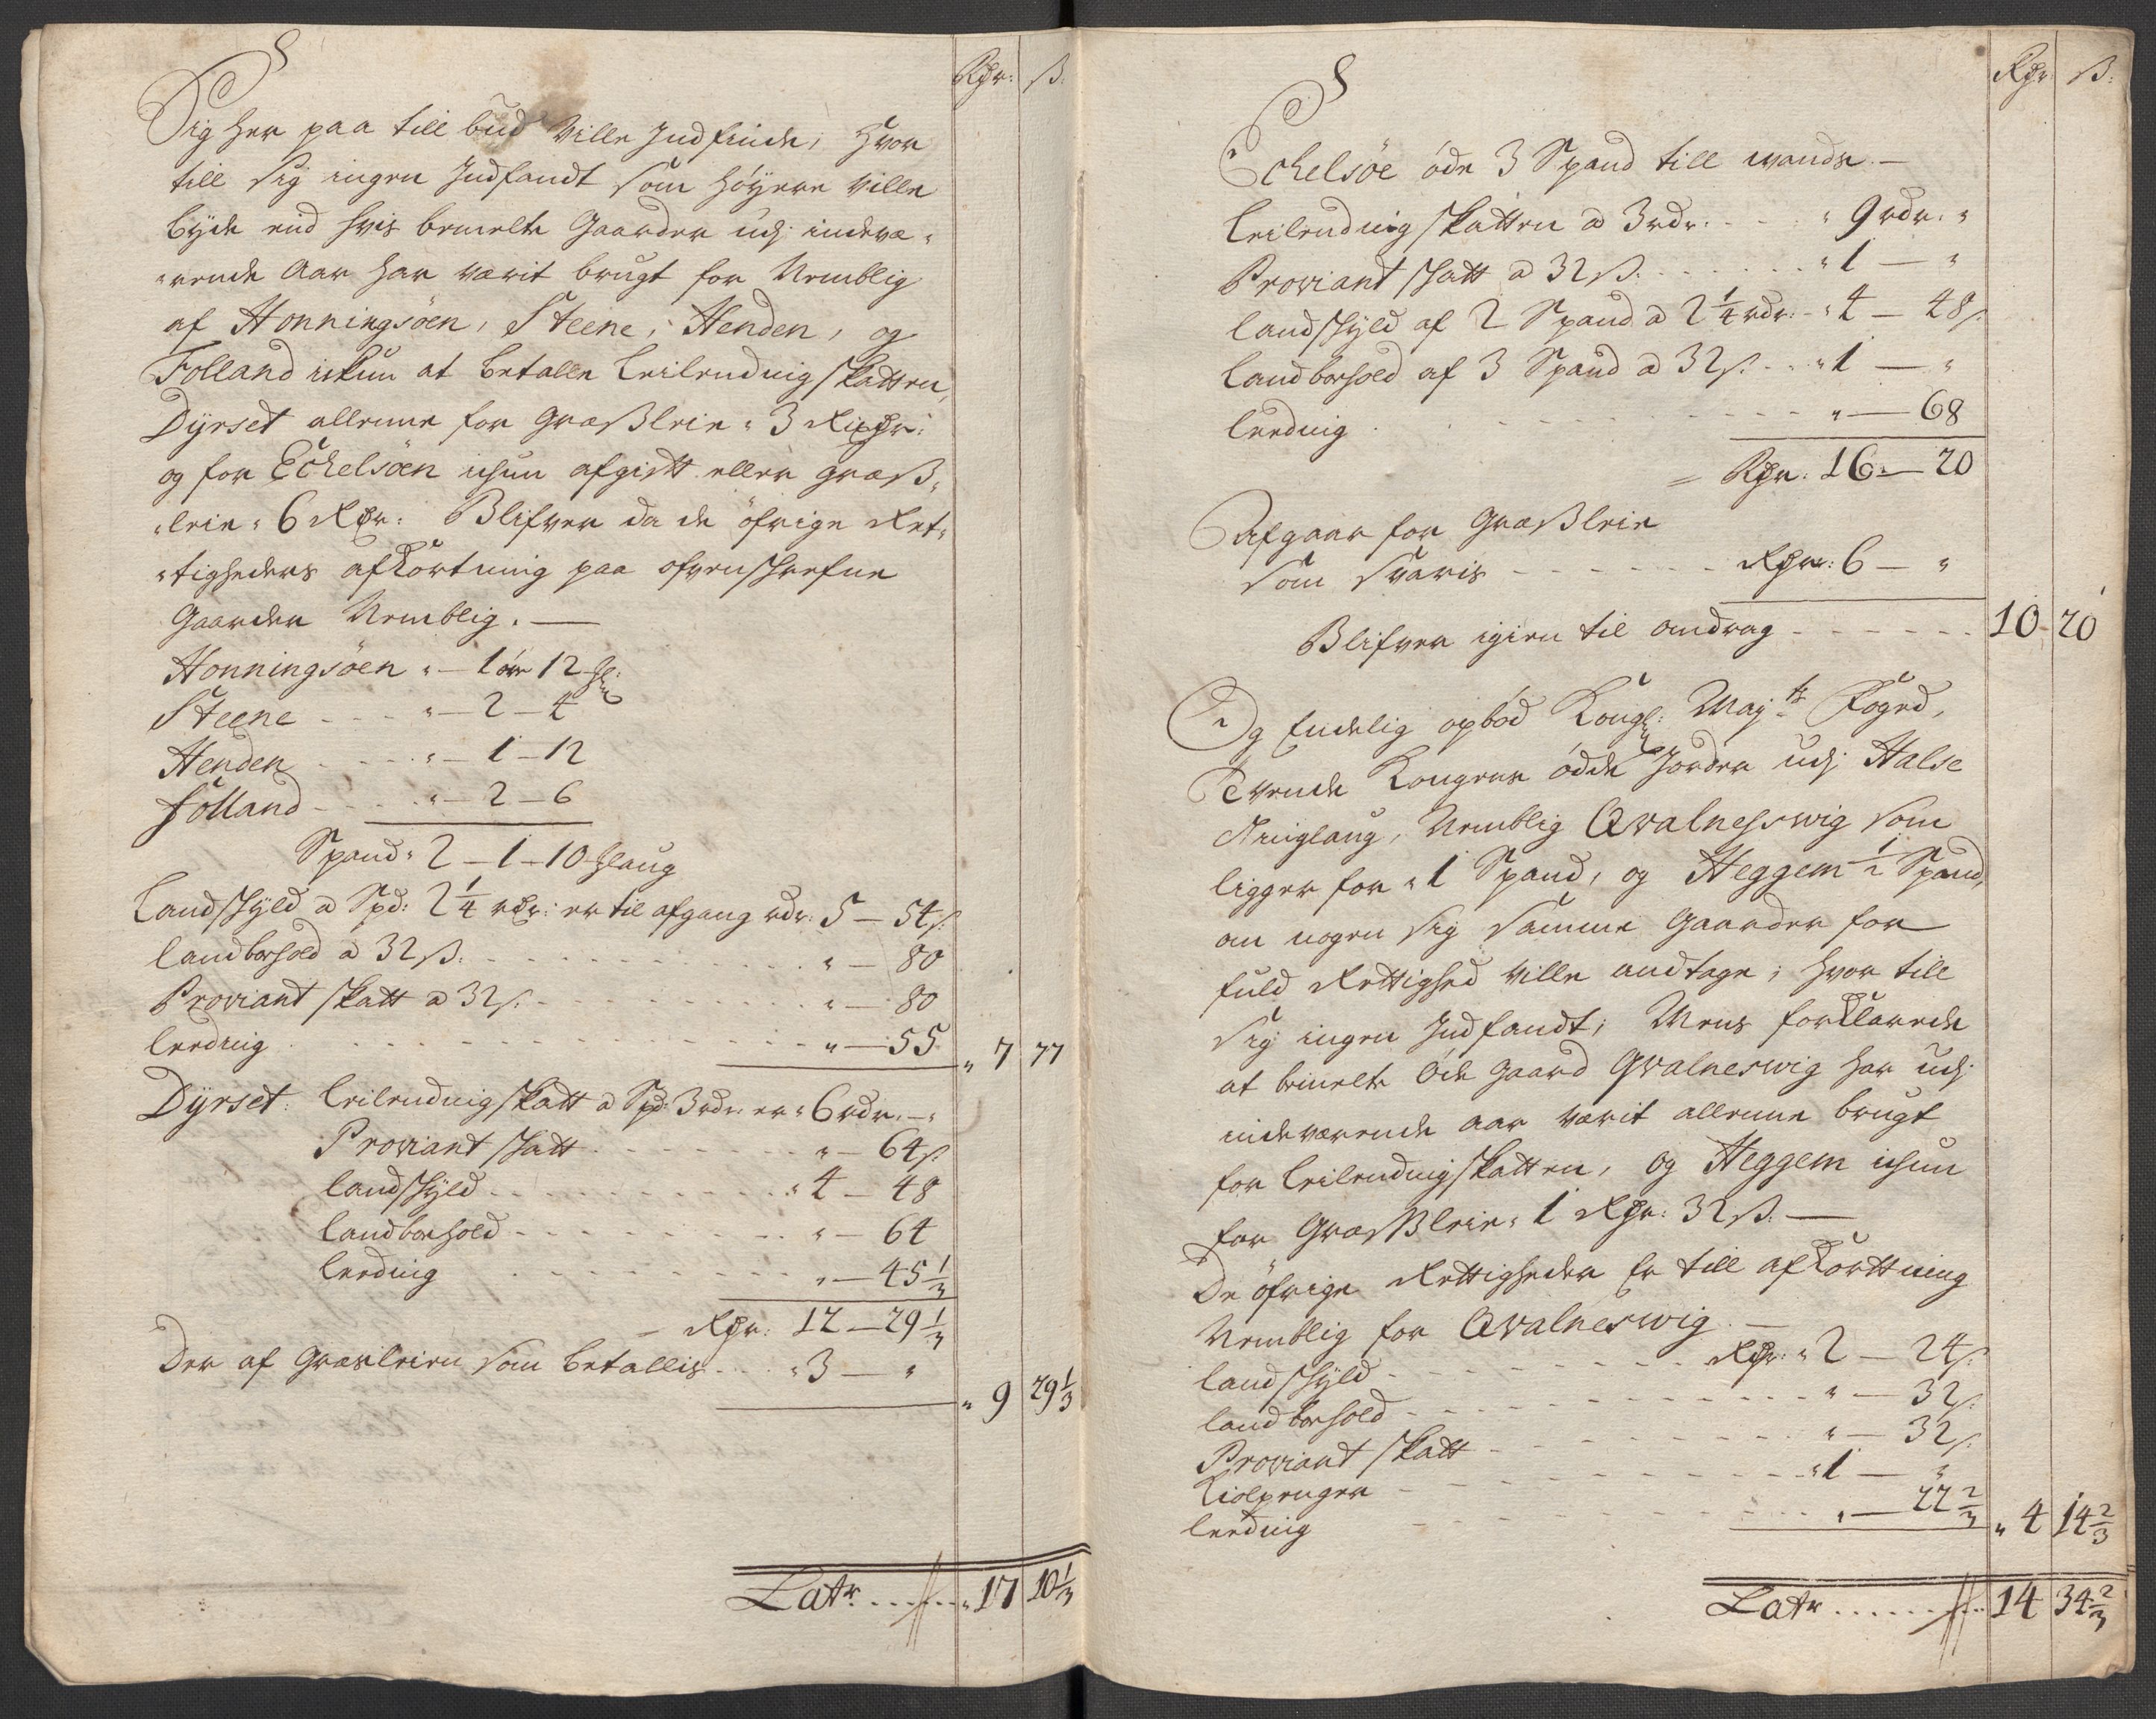 Rdr: ß.
Sig her paa till bud Ville Indfinde, hvor
till sig ingen Indfandt som höyere Ville
byde end hvis bemelte Gaarder udj indevæ-
rende Aar har værit brugt for Nemblig
af Honningsöen, Steene, Henden, og
Folland ickun at betalle Leilendingskatten,
Dyrset allenne for Græsleie 3 Rixdr:
og for Eckelsöen ickun afgift eller græs-
leie 6 Rdr: Blifver da de öfrige Ret-
tigheders afkortning paa ofvenschrefne
Gaarder Nemblig. —
Honningsöen " — 1 öre 12 Ml:
Steene - - - " — 2 — 4
Henden - - - - " — 1 — 12
Folland - - - " — 2 — 6
Spand " 2 — 1 — 10 Mlaug
Landschyld a Spd: 2 1/4 rdr: er til afgang rdr: 5 — 54 s.
landborhold a 32 ß. - - - - " — 80
Proviant skatt a 32 s. - - - - " — 80
Leeding - - - - " — 55 " 7 77
Dyrset: Leilending skatt a Spd: 3 rdr. er " 6 rdr. — "
Proviant schatt - - - - " — 64 s.
landschyld - - - - " 4 — 48
landborhold - - - - " — 64
Leeding - - - - " — 45 1/3
Rdr: 12 — 29 1/3
Der af Græsleien som betallis - - " 3 — " " 9 29 1/3
Latr. . . . . . " 17 10 1/3
Rdr ß.
Eckelsöe öde 3 Spand till wands —
Leilending skatten a 3 rdr. - - " 9 rdr. "
Proviant schatt a 32 ß. - - - - " 1 — "
landschyld af 2 Spand a 2 1/4 rdr - " 4 — 48 s.
Landborhold af 3 Spand a 32 s. - - " 1 — "
Leeding - - - - " — 68
Rdr: 16 — 20
Afgaar for Græsleie
som svaris - - - - Rdr: 6 — "
Blifver igien til andrag - - - - 10 20
Og Endelig opböd Kongl: Maytz Foged,
tvende Kongens ödde Jorder udj Halse
Tinglaug, Nemblig Qvalneswig som
ligger for " 1 Spand, og Heggem 1/2 Spand,
om nogen sig samme Gaarder for
fuld Rettighed ville andtage; hvor till
sig ingen Indfandt; Mens forklarede
at bemelte öde gaard Qvalneswig har udj
indeværende aar værit allenne brugt
for Leilendingskatten, og Heggem ickun
for Græsleie " 1 Rdr: 32 ß. —
De öfrige Rettigheder Er till afkorttning
Nemblig for Qvalneswig —
landschyld - - - - Rdr: " 2 — 24 s.
landborhold - - - - " — 32 s.
Proviant skatt - - - - " — 32 s.
Kiolpenger - - - - " 1 — "
Leeding - - - - " — 22 2/3 " 4 14 2/3
Latr . . . . . . 14 34 2/3